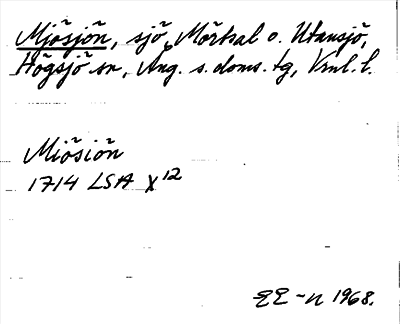 Mjösjön, sjö, Mörtsal o. Utansjö,
Högsjö sn, Ång. s. doms. tg, Vrnl. l.
Miösiön
1714 LSA X12
EE-n 1968.